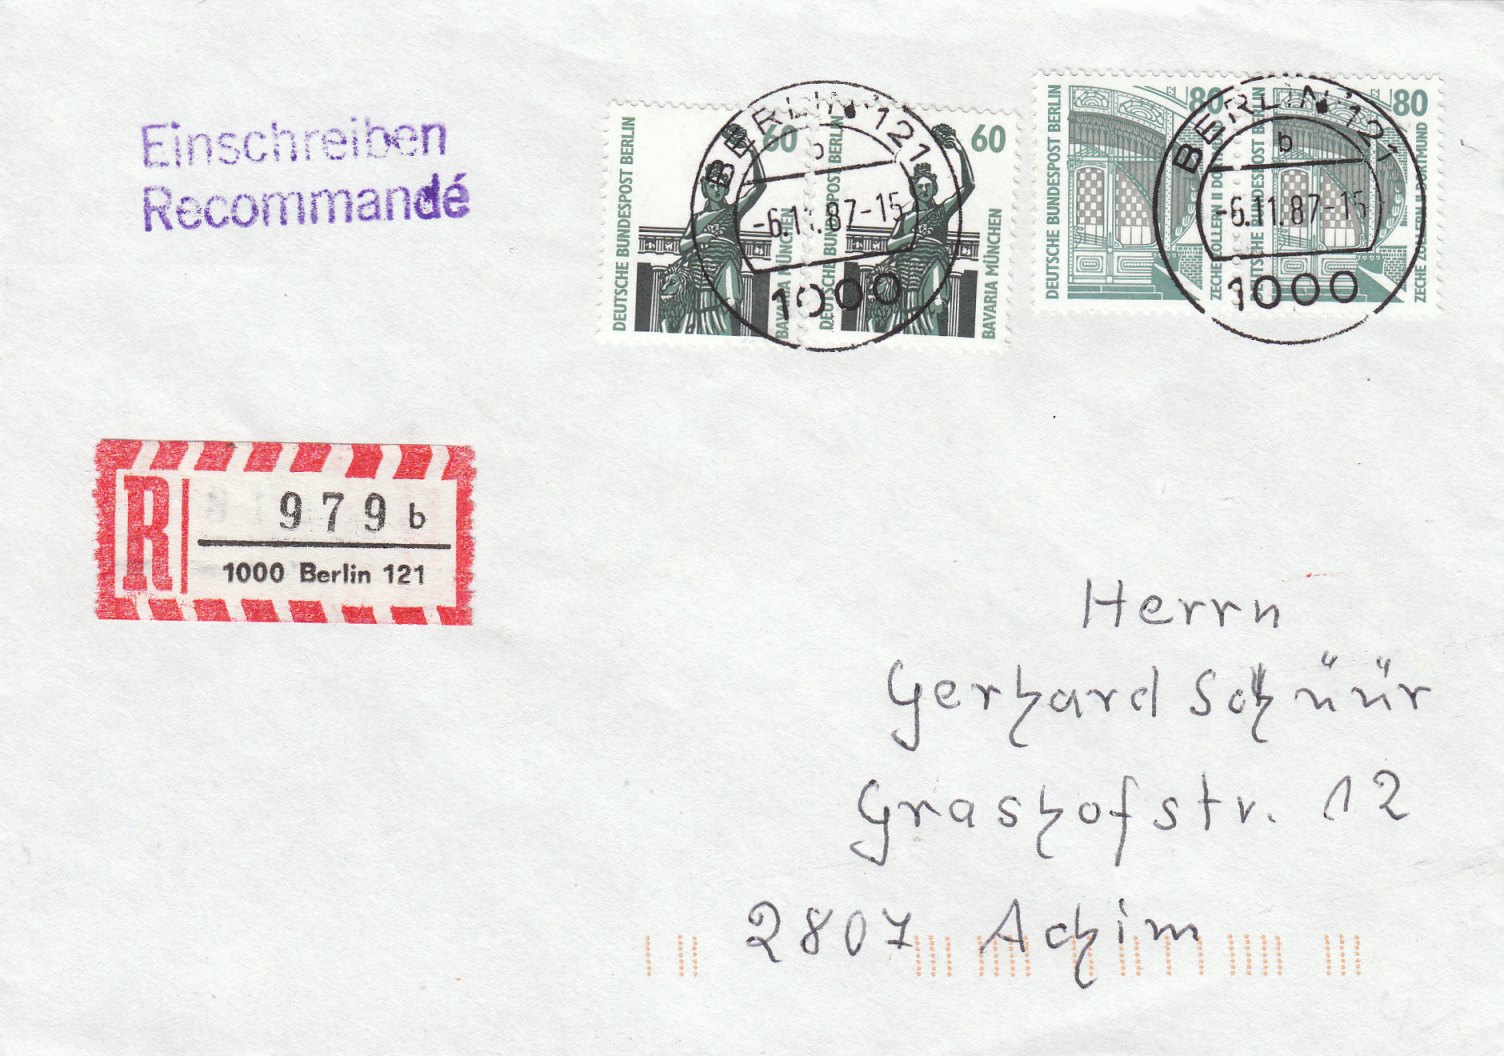 Einschreiben
Recommandé
DEUTSCHE BUNDESPOST BERLIN
60
BAVARIA MÜNCHEN
DEUTSCHE BUNDESPOST BERLIN
60
BAVARIA MÜNCHEN
BERLIN 121
b
-6.11.87-15
1000
DEUTSCHE BUNDESPOST BERLIN
80
ZECHE ZOLLERN II DORTMUND
DEUTSCHE BUNDESPOST BERLIN
80
ZECHE ZOLLERN II DORTMUND
BERLIN 121
b
-6.11.87-15
1000
R
979 b
1000 Berlin 121
Herrn
Gerhard Schüür
Grashofstr. 12
2807 Achim